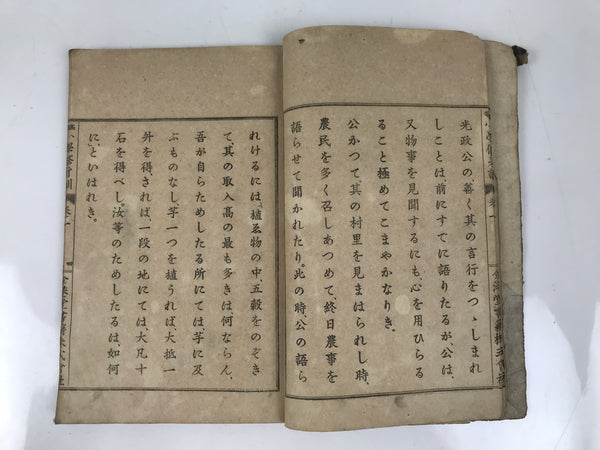 光政公の善く其の言行をつゝしまれ
しことは前にすでに語りたるが、公は、
又物事を見聞するにも、心を用ひらる
ること極めてこまやかなりき。
公かつて其の村里を見まはられし時、
農民を多く召しあつめて、終日農事を
語らせて聞かれたり。此の時、公の語ら
れけるには、「植ゑ物の中五穀をのぞき
て、其の取入高の最も多きは何ならん、
吾が自らためしたる所にては芋に及
ぶものなし芋一つを植うれば、大抵一
外を得されば、一段の地にては、大凡十
石を得べし。汝等のためしたるは、如何
に」といはれき。